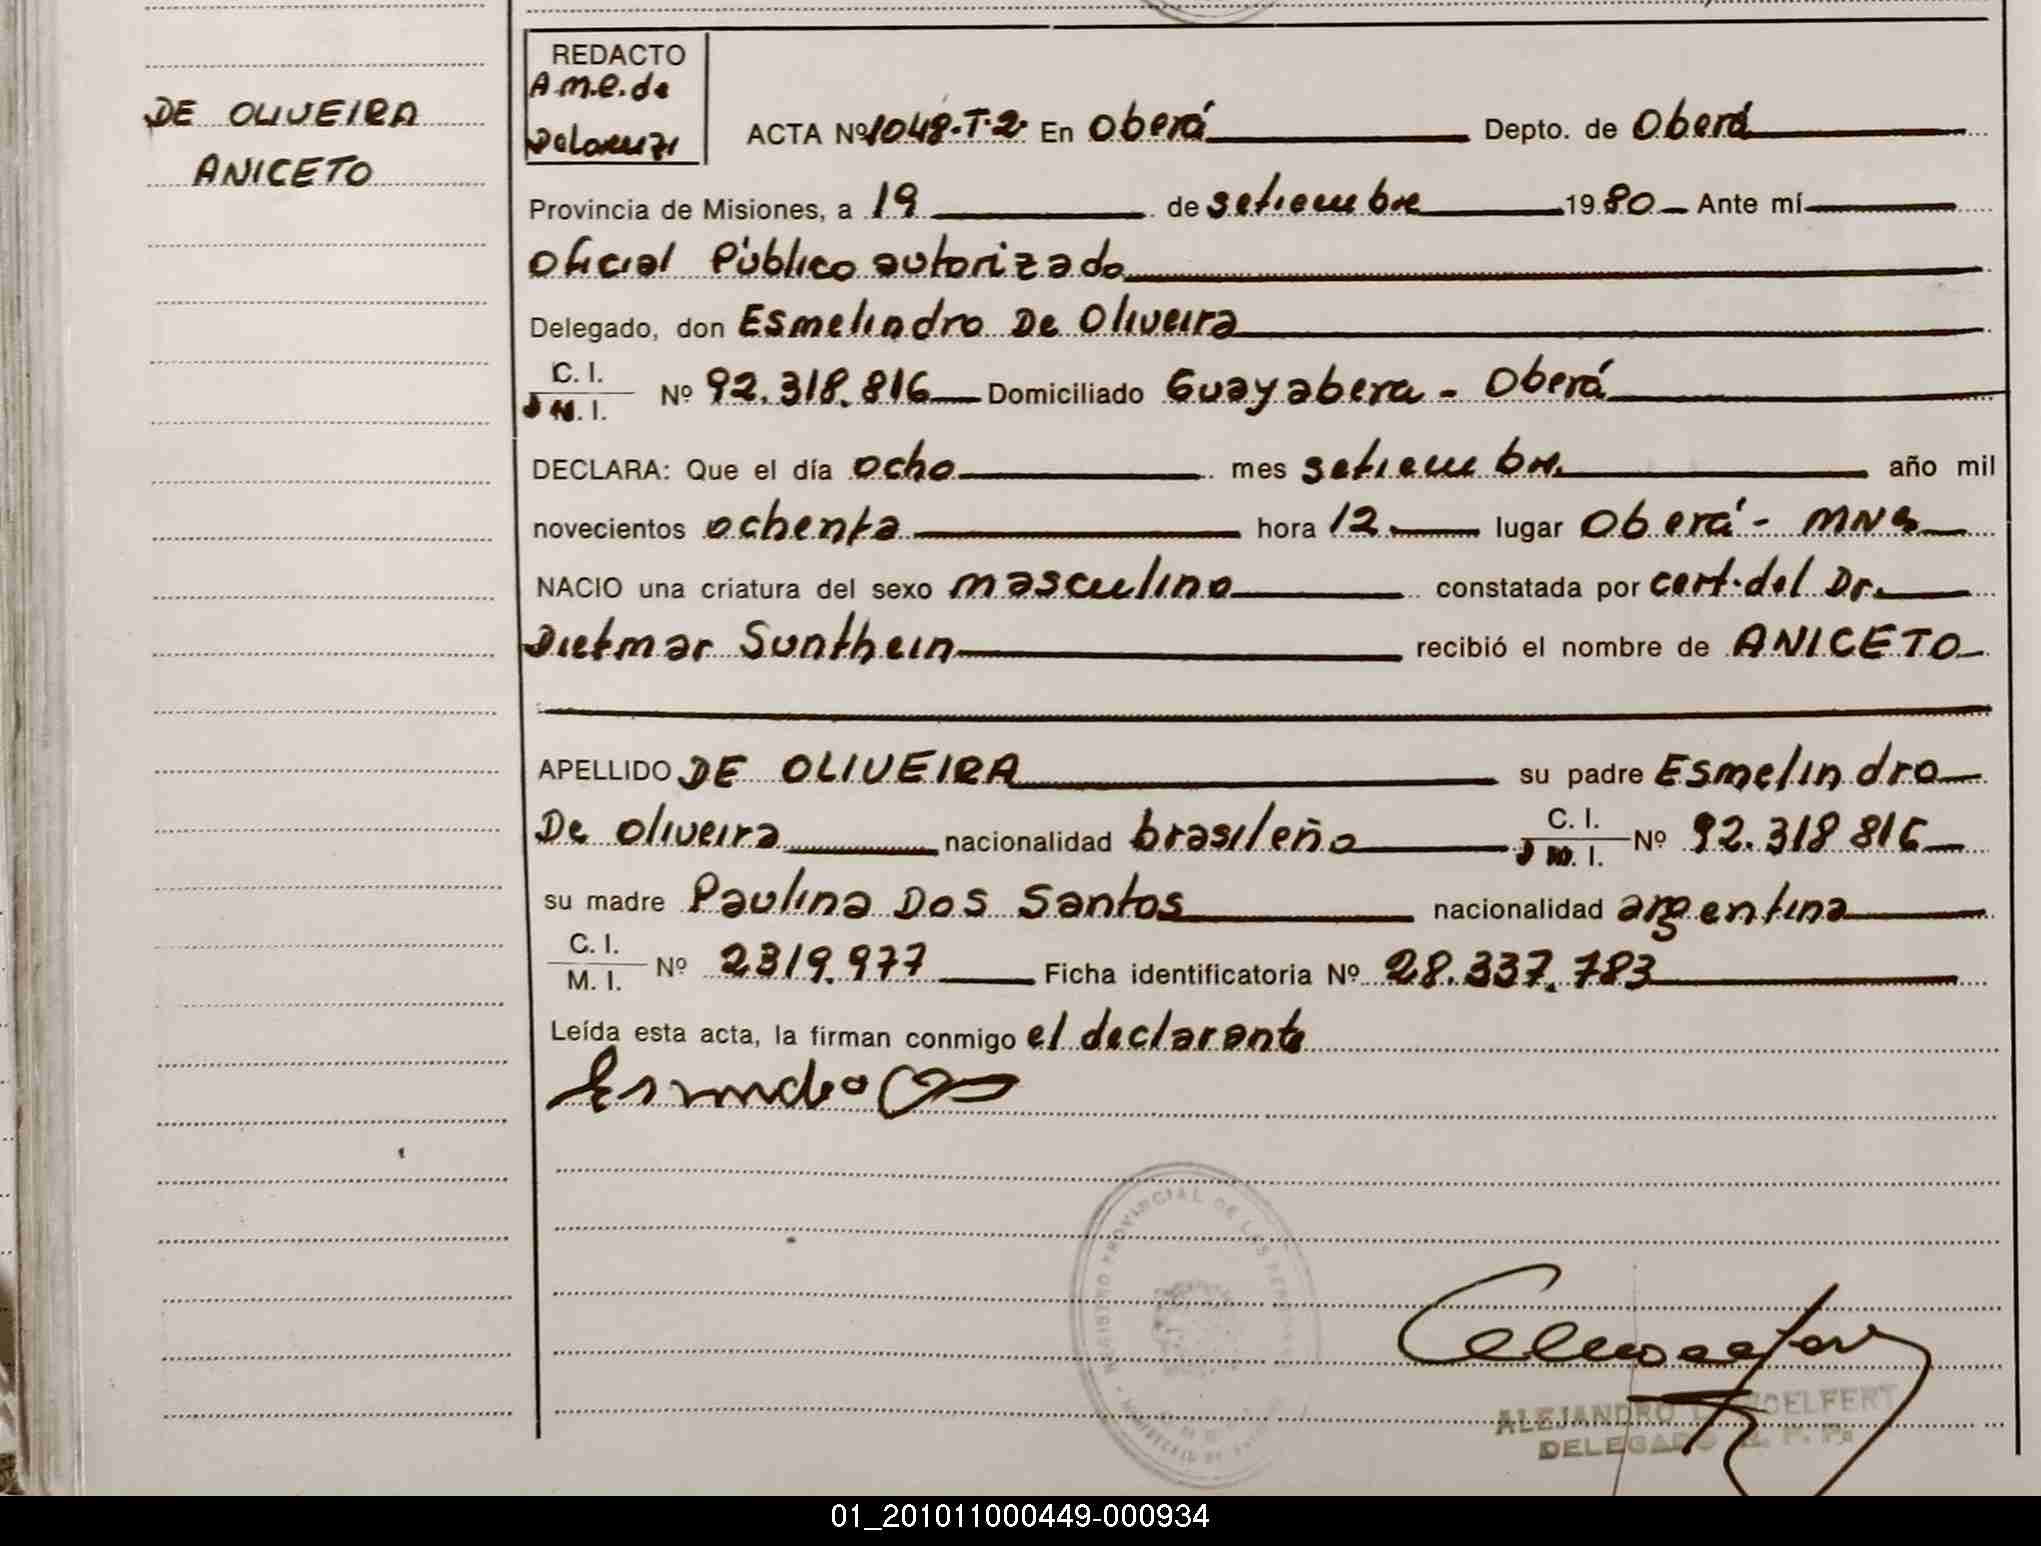 DE OLIVEIRA
ANICETO
REDACTO
A.M.E. de
Delorenzi
ACTA Nº 1048-T-2 En Oberá Depto. de Oberá
Provincia de Misiones, a 19 de setiembre 1980 Ante mí
Oficial Público autorizado
Delegado, don Esmelindro De Oliveira
C. I.
D N. I. Nº 92.318.816 Domiciliado Guayabera - Oberá
DECLARA: Que el día ocho mes setiembre año mil
novecientos ochenta hora 12 lugar Oberá - MNES
NACIO una criatura del sexo masculino constatada por cert. del Dr.
Dietmar Sunthein recibió el nombre de ANICETO
APELLIDO DE OLIVEIRA su padre Esmelindro
De Oliveira nacionalidad brasileño C. I. D N. I. Nº 92.318 816
su madre Paulina Dos Santos nacionalidad argentina
C. I.
M. I. Nº 2319.977 Ficha identificatoria Nº 28.337.783
Leída esta acta, la firman conmigo el declarante
REGISTRO PROVINCIAL DE LAS PERSONAS
ALEJANDRO HOELFERT
DELEGADO R. P. P.
01_201011000449-000934